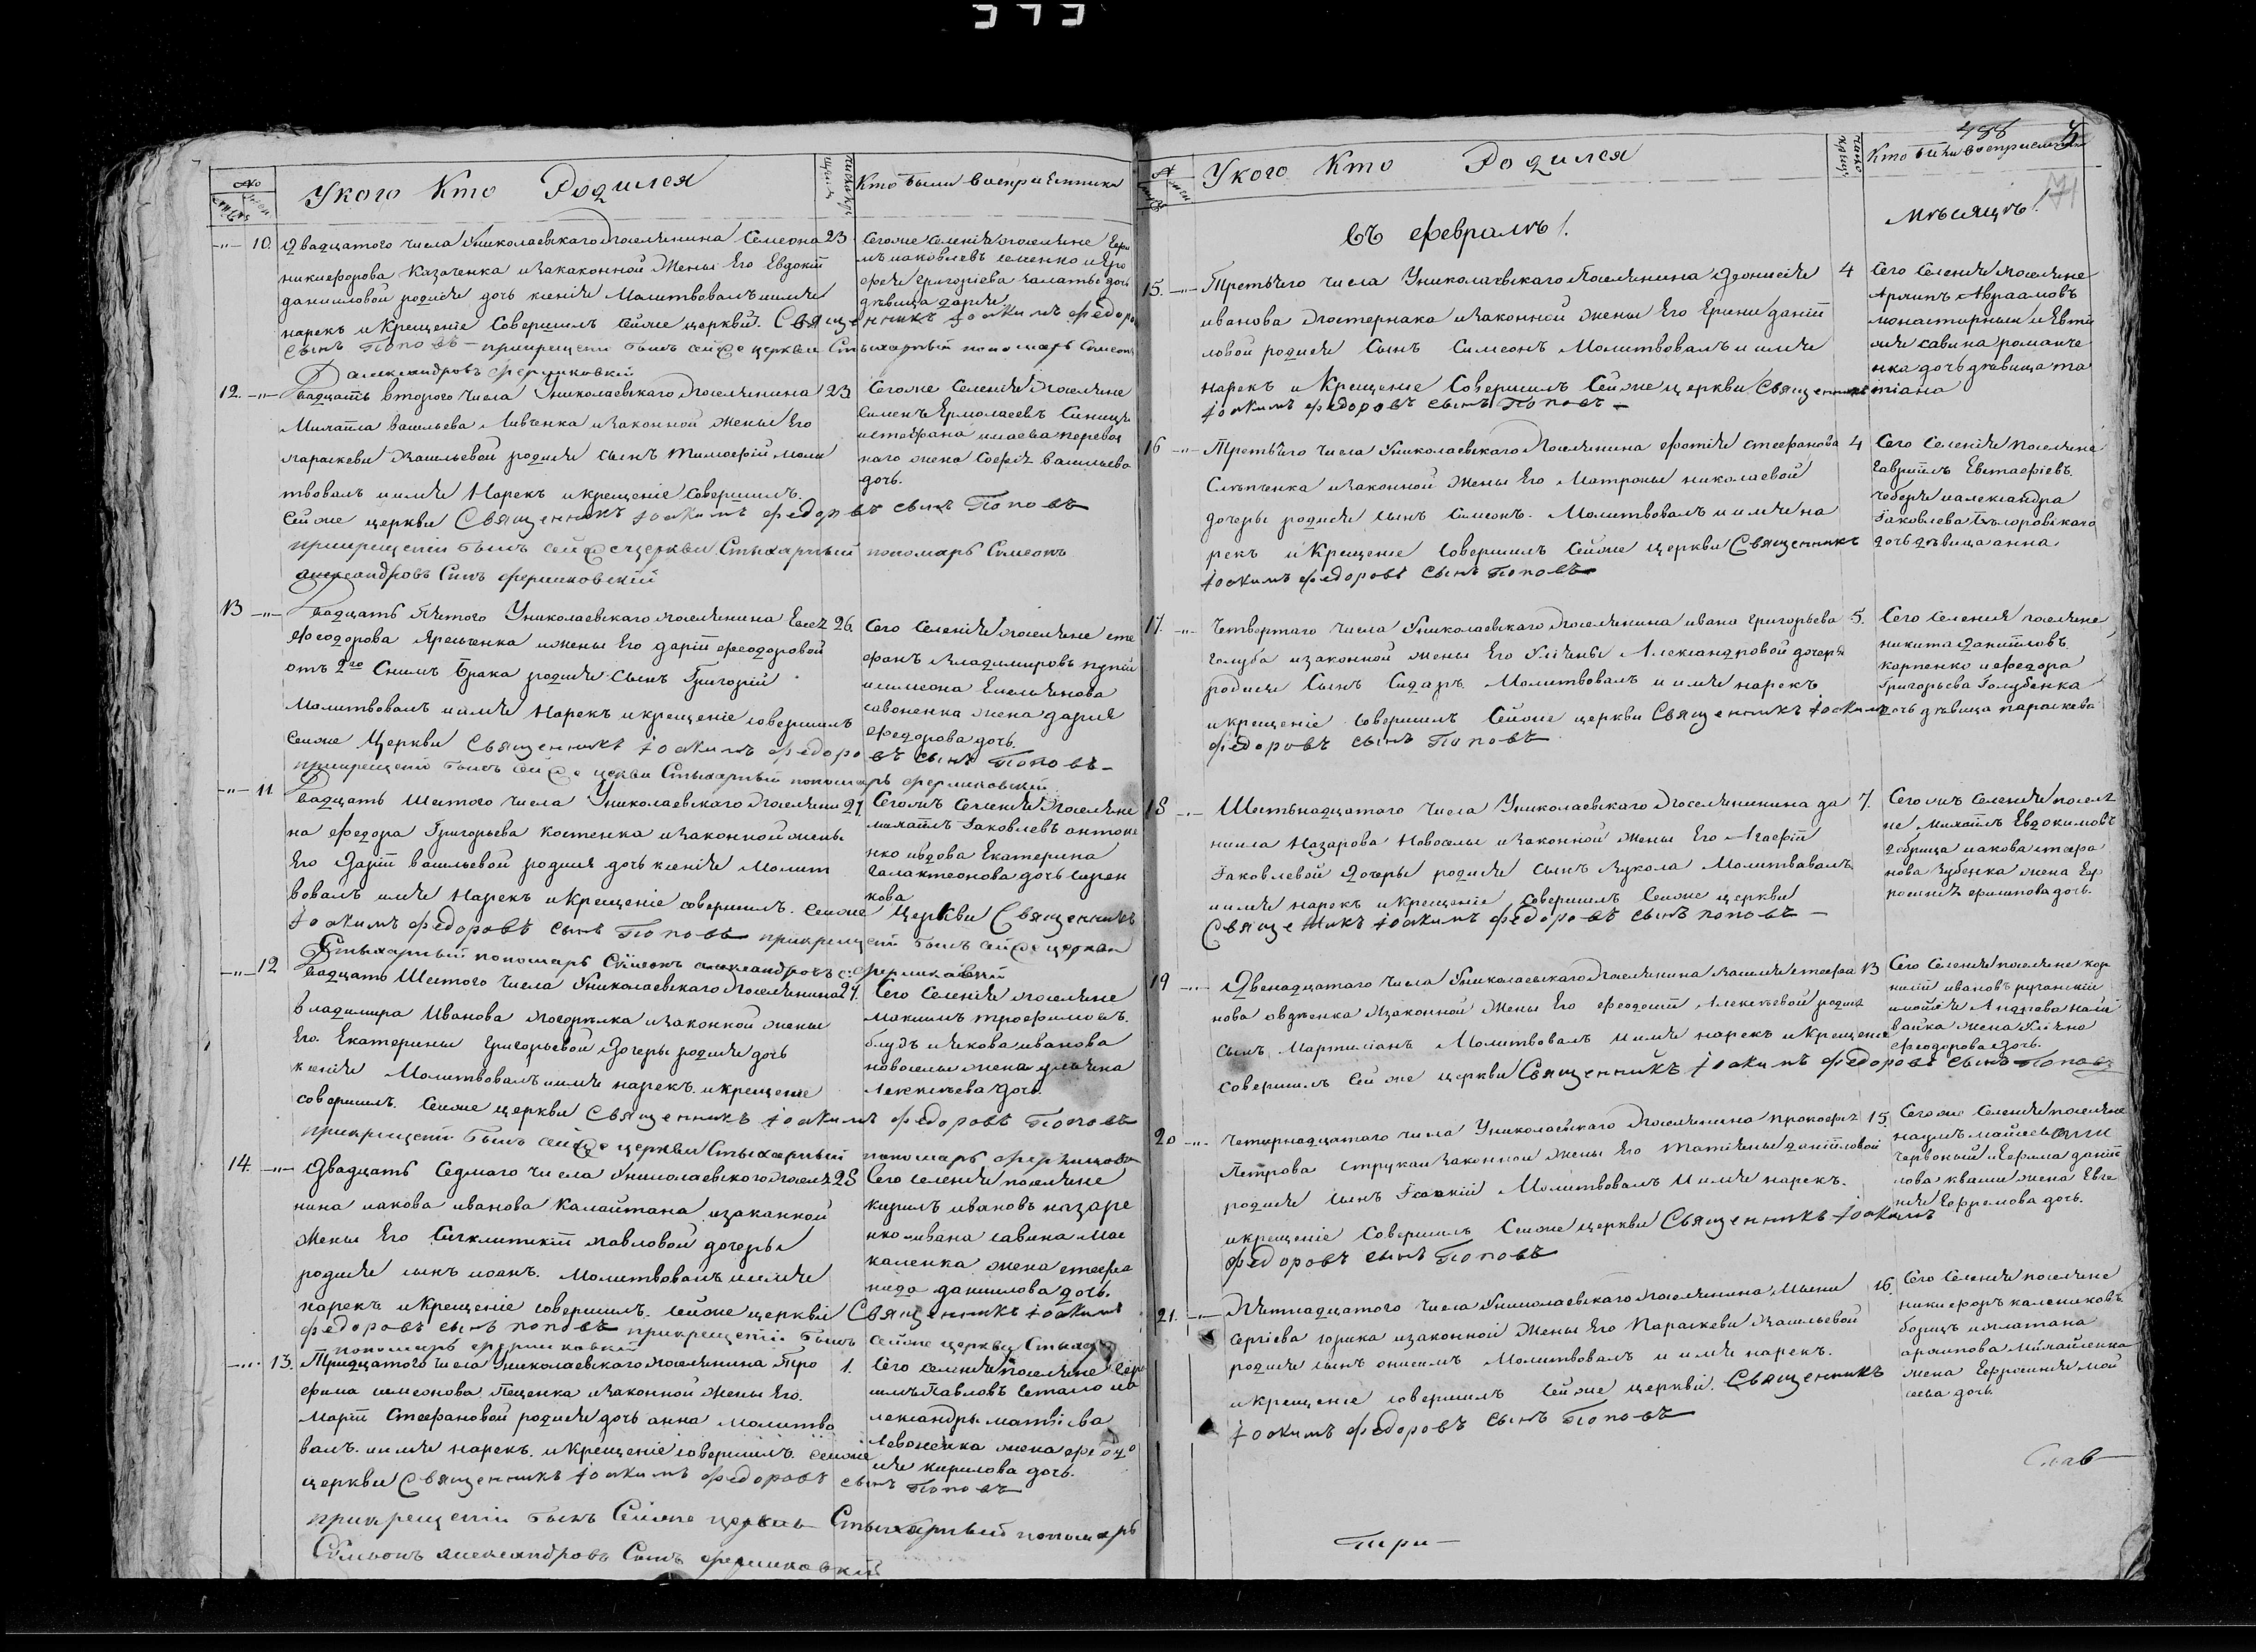 373
№
У кого Кто Родился
Кто были восприемники
10. Двадцатого числа Униколаевскаго поселянина Семеона 23
никифорова Казаченка изаконной жены Его Евдокіи
даниловой родися дочь ксенія Молитвовалъ иимя
нарекъ и Крещеніе Совершилъ сейже церкви Священникъ Iоакимъ федоровъ
сынъ Поповъ – прикрещеніи былъ сейже церкви Стихарный пономарь Симеонъ
александровъ
Сегоже Селенія поселяне
яковлевъ семенко и
григоріева дочь
девица дарія
12. Двадцать втораго числа Униколаевскаго поселянина 23
Михаила васильева Левченка изаконной жены Его
параскеви васильевой родися сынъ Тимофей моли
твовалъ иимя Нарекъ икрещеніе совершилъ
сейже церкви Священникъ Iоакимъ федоровъ сынъ Поповъ
прикрещеніи былъ сейже церкви Стихарный пономарь Симеонъ
александровъ Сынъ
Сегоже Селенія поселяне
Ермолаевъ Синица
истефана исаева
жена Софія васильева
дочь.
13 Двадцать Пятого Униколаевскаго поселянина 26.
Феодорова ижены Его даріи феодоровой
отъ 2го Снимъ брака родися Сынъ Григорій
Молитвовалъ иимя Нарекъ икрещеніе совершилъ
сейже Церкви Священникъ Iоакимъ федоровъ сынъ Поповъ –
прикрещеніи былъ сейже церкви Стихарный пономарь
Сего Селенія поселяне сте
фанъ владимировъ
исимеона Емельянова
савоненка жена дарія
федорова дочь.
11 Двадцать Шестого числа Униколаевскаго поселяни 27.
на федора Григорьева Костенка изаконной жены
Его Даріи васильевой родися дочь ксенія Молит
вовалъ иимя Нарекъ икрещеніе совершилъ. сейже Церкви Священникъ
Iоакимъ федоровъ сынъ Поповъ прикрещеніи былъ сейже церкви
Стихарный пономарь Симеонъ александровъ
Сегожъ Селенія Поселяне
михайлъ Iаковлевъ антоне
нко ивдова Екатерина
Галактеонова дочь
12 Двадцать Шестого числа Униколаевскаго поселянина 27.
владимира Иванова изаконной жены
Его Екатерины Григорьевой Дочеры родися дочь
ксенія Молитвовалъ иимя нарекъ. икрещеніе
совершилъ. Сейже церкви Священникъ Iоакимъ федоровъ Поповъ
прикрещеніи былъ сейже церкви Стихарный пономарь
Сего Селенія поселяне
Максимъ трофимовъ.
иякова иванова
новоселы жена ульяна
Алексеева дочь.
14. Двадцать Седмаго числа Униколаевскаго поселя 28
нина иакова иванова Калайтана изаконной
жены Его Синклитикіи павловой дочеры
родися сынъ иоанъ. Молитвовалъ иимя
нарекъ икрещеніе совершилъ. сейже церкви Священникъ Iоакимъ
федоровъ сынъ поповъ прикрещеніи былъ сейже церкви
пономарь
Сего селенія поселяне
кирилъ ивановъ назаре
нко ивана савина мос
каленка жена стефа
нида данилова дочь.
13. Тридцатого числа Униколаевскаго поселянина Тро 1.
фима симеонова изаконной жены Его.
Маріи Стефановой родися дочь анна Молитво
валъ. иимя нарекъ. и крещеніе совершилъ. сейже
церкви Священникъ Iоакимъ федоровъ сынъ Поповъ
прикрещеніи былъ Сейже церкви Стихарный пономарь
Симеонъ александровъ Сынъ
Сего селенія поселяне
Павловъ
александры матвіева
Левоненка жена
кирилова дочь.
488
71
У кого Кто Родился
Кто были восприемники
Въ февралѣ!
мѣсяцѣ!
15. Третьяго числа Униколаевскаго Поселянина Деонисія 4
иванова Пастернака изаконной жены Его Ерини даніи
ловой родися Сынъ Симеонъ Молитвовалъ и имя
нарекъ и Крещеніе Совершилъ Сейже церкви Священникъ
Iоакимъ федоровъ сынъ Поповъ –
Сего Селенія поселяне
Архипъ Авраамовъ
монастырный и
савина романче
нка дочь дѣвица та
тіана
16 Третьяго числа Униколаевскаго Поселянина фотія стефанова 4
Слѣпченка изаконной жены Его Матроны николаевой
дочеры родися сынъ Симеонъ. Молитвовалъ и имя на
рекъ и Крещеніе Совершилъ Сейже церкви Священникъ
Iоакимъ федоровъ сынъ Поповъ
Сего Селенія Поселяне
Гавріилъ Евстафіевъ.
иалександра
Iаковлева
дочь дѣвица анна
17. Четвертаго числа Униколаевскаго Поселянина ивана Григорьева 5.
Голуба изаконной жены Его Ульяны Александровой дочеры
родися Сынъ Сидоръ. Молитвовалъ и имя нарекъ
икрещеніе Совершилъ Сейже церкви Священникъ Iоакимъ
федоровъ сынъ Поповъ
Сего Селенія поселяне
никита даніиловъ
карпенко и федора
Григорьева Голубенка
дочь дѣвица параскева
18 Шестьнадцатаго числа Униколаевскаго Поселянина да 7.
ниила Назарова Новоселы изаконной жены Его Агафіи
Iаковлевой Дочеры родися сынъ Вукола Молитвовалъ
иимя нарекъ икрещеніе Совершилъ Сейже церкви
Священникъ Iоакимъ федоровъ сынъ поповъ –
Сегожъ Селенія поселя
не Михайлъ Евдокимовъ
иакова стефа
нова жена Ефро
филипова дочь.
19 Двенадцатаго числа Униколаевскаго Поселянина василія стефа 13
нова авдѣенка изаконной жены Его Феодосіи Алексѣевой родися
сынъ Мартиніанъ Молитвовалъ иимя нарекъ и Крещеніе
совершилъ Сейже церкви Священникъ Iоакимъ федоровъ сынъ Поповъ
Сего Селенія поселяне кор
нилій ивановъ
Андреева нали
вайка жена Уліяна
Феодорова дочь.
20 Четырнадцатаго числа Униколаевскаго Поселянина прокофія 15.
Петрова струка изаконной жены Его Татіяны даніиловой
родися сынъ Iсаакій Молитвовалъ и имя нарекъ.
икрещеніе Совершилъ Сейже церкви Священникъ Iоакимъ
федоровъ сынъ Поповъ
Сегоже Селенія поселяне
Червоный иЕфима даніи
лова жена Евге
нія Ефремова дочь.
21. Пятнадцатаго числа Униколаевскаго Поселянина 16.
Сергіева изаконной жены Его Параскеви васильевой
родися сынъ онисимъ Молитвовалъ и имя нарекъ.
икрещеніе совершилъ Сейже церкви. Священникъ
Iоакимъ федоровъ сынъ Поповъ
Сего Селенія поселяне
никифоръ калениковъ
борицъ иплатана
архипова михайленка
жена Ефросинія мой
сеева дочь.